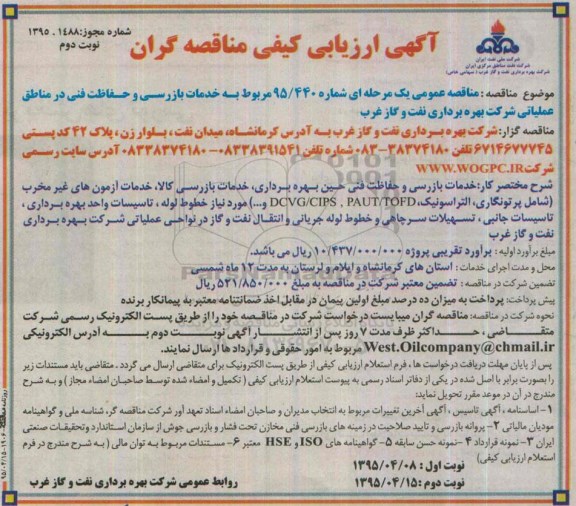 شماره مجوز:۱۴۸۸. ۱۳۹۵
نوبت دوم
آگهی ارزیابی کیفی مناقصه گران
شرکت ملی نفت ایران
شرکت نفت مناطق مرکزی ایران
شرکت بهره برداری نفت و گاز غرب (سهامی خاص)
موضوع مناقصه: مناقصه عمومی یک مرحله ای شماره ۹۵/۴۴۰ مربوط به خدمات بازرسی و حفاظت فنی در مناطق
عملیاتی شرکت بهره برداری نفت و گاز غرب
مناقصه گزار: شرکت بهره برداری نفت و گاز غرب به آدرس کرمانشاه، میدان نفت، بلوار زن، پلاک ۴۲ کد پستی
۶۷۱۴۶۷۷۷۴۵ تلفن ۳۸۳۷۴۱۸۰-۰۸۳ شماره تلفن ۰۸۳۳۸۳۹۱۵۴۱-۰۸۳۳۸۳۷۴۱۸۰ آدرس سایت رسمی
شرکت WWW.WOGPC.IR
شرح مختصر کار: خدمات بازرسی و حفاظت فنی حین بهره برداری، خدمات بازرسی کالا، خدمات آزمون های غیر مخرب
(شامل پرتونگاری، التراسونیک، DCVG/CIPS , PAUT/TOFD و...) مورد نیاز خطوط لوله، تاسیسات واحد بهره برداری،
تاسیسات جانبی، تسهیلات سرچاهی و خطوط لوله جریانی و انتقال نفت و گاز در نواحی عملیاتی شرکت بهره برداری
نفت و گاز غرب
مبلغ برآورد اولیه: برآورد تقریبی پروژه ۱۰/۴۳۷/۰۰۰/۰۰۰ ریال می باشد.
محل و مدت اجرای خدمات: استان های کرمانشاه و ایلام و لرستان به مدت ۱۲ ماه شمسی
تضمین شرکت در مناقصه: تضمین معتبر شرکت در مناقصه به مبلغ ۵۲۱/۸۵۰/۰۰۰ ریال
پیش پرداخت: پرداخت به میزان ده درصد مبلغ اولین پیمان در مقابل اخذ ضمانتنامه معتبر به پیمانکار برنده
نحوه شرکت در مناقصه: مناقصه گران میبایست درخواست شرکت در مناقصه خود را از طریق پست الکترونیک رسمی شرکت
متقاضی، حداکثر ظرف مدت ۷ روز پس از انتشار آگهی نوبت دوم به آدرس الکترونیکی
West.Oilcompany@chmail.ir مربوط به امور حقوقی و قراردادها ارسال نمایند.
پس از پایان مهلت دریافت درخواست ها، فرم استعلام ارزیابی کیفی از طریق پست الکترونیک برای متقاضی ارسال می گردد. متقاضی باید مستندات زیر
را بصورت برابر با اصل شده در یکی از دفاتر اسناد رسمی به پیوست استعلام ارزیابی کیفی (تکمیل و امضاء شده توسط صاحبان امضاء مجاز) و به شرح
مندرج در آن در موعد مقرر تحویل نماید:
۱- اساسنامه، آگهی تاسیس، آگهی آخرین تغییرات مربوط به انتخاب مدیران و صاحبان امضاء تعهد آور شرکت مناقصه گر، شناسه ملی و گواهینامه
مودیان مالیاتی ۲- پروانه بازرسی و تایید صلاحیت در زمینه های بازرسی فنی مخازن تحت فشار و بازرسی جوش از سازمان استاندارد و تحقیقات صنعتی
ایران ۳- نمونه قرارداد ۴- نمونه حسن سابقه ۵- گواهینامه های ISO و HSE معتبر ۶- مستندات مربوط به توان مالی (به شرح مندرج در فرم
استعلام ارزیابی کیفی)
نوبت اول: ۱۳۹۵/۰۴/۰۸
نوبت دوم: ۱۳۹۵/۰۴/۱۵
روابط عمومی شرکت بهره برداری نفت و گاز غرب